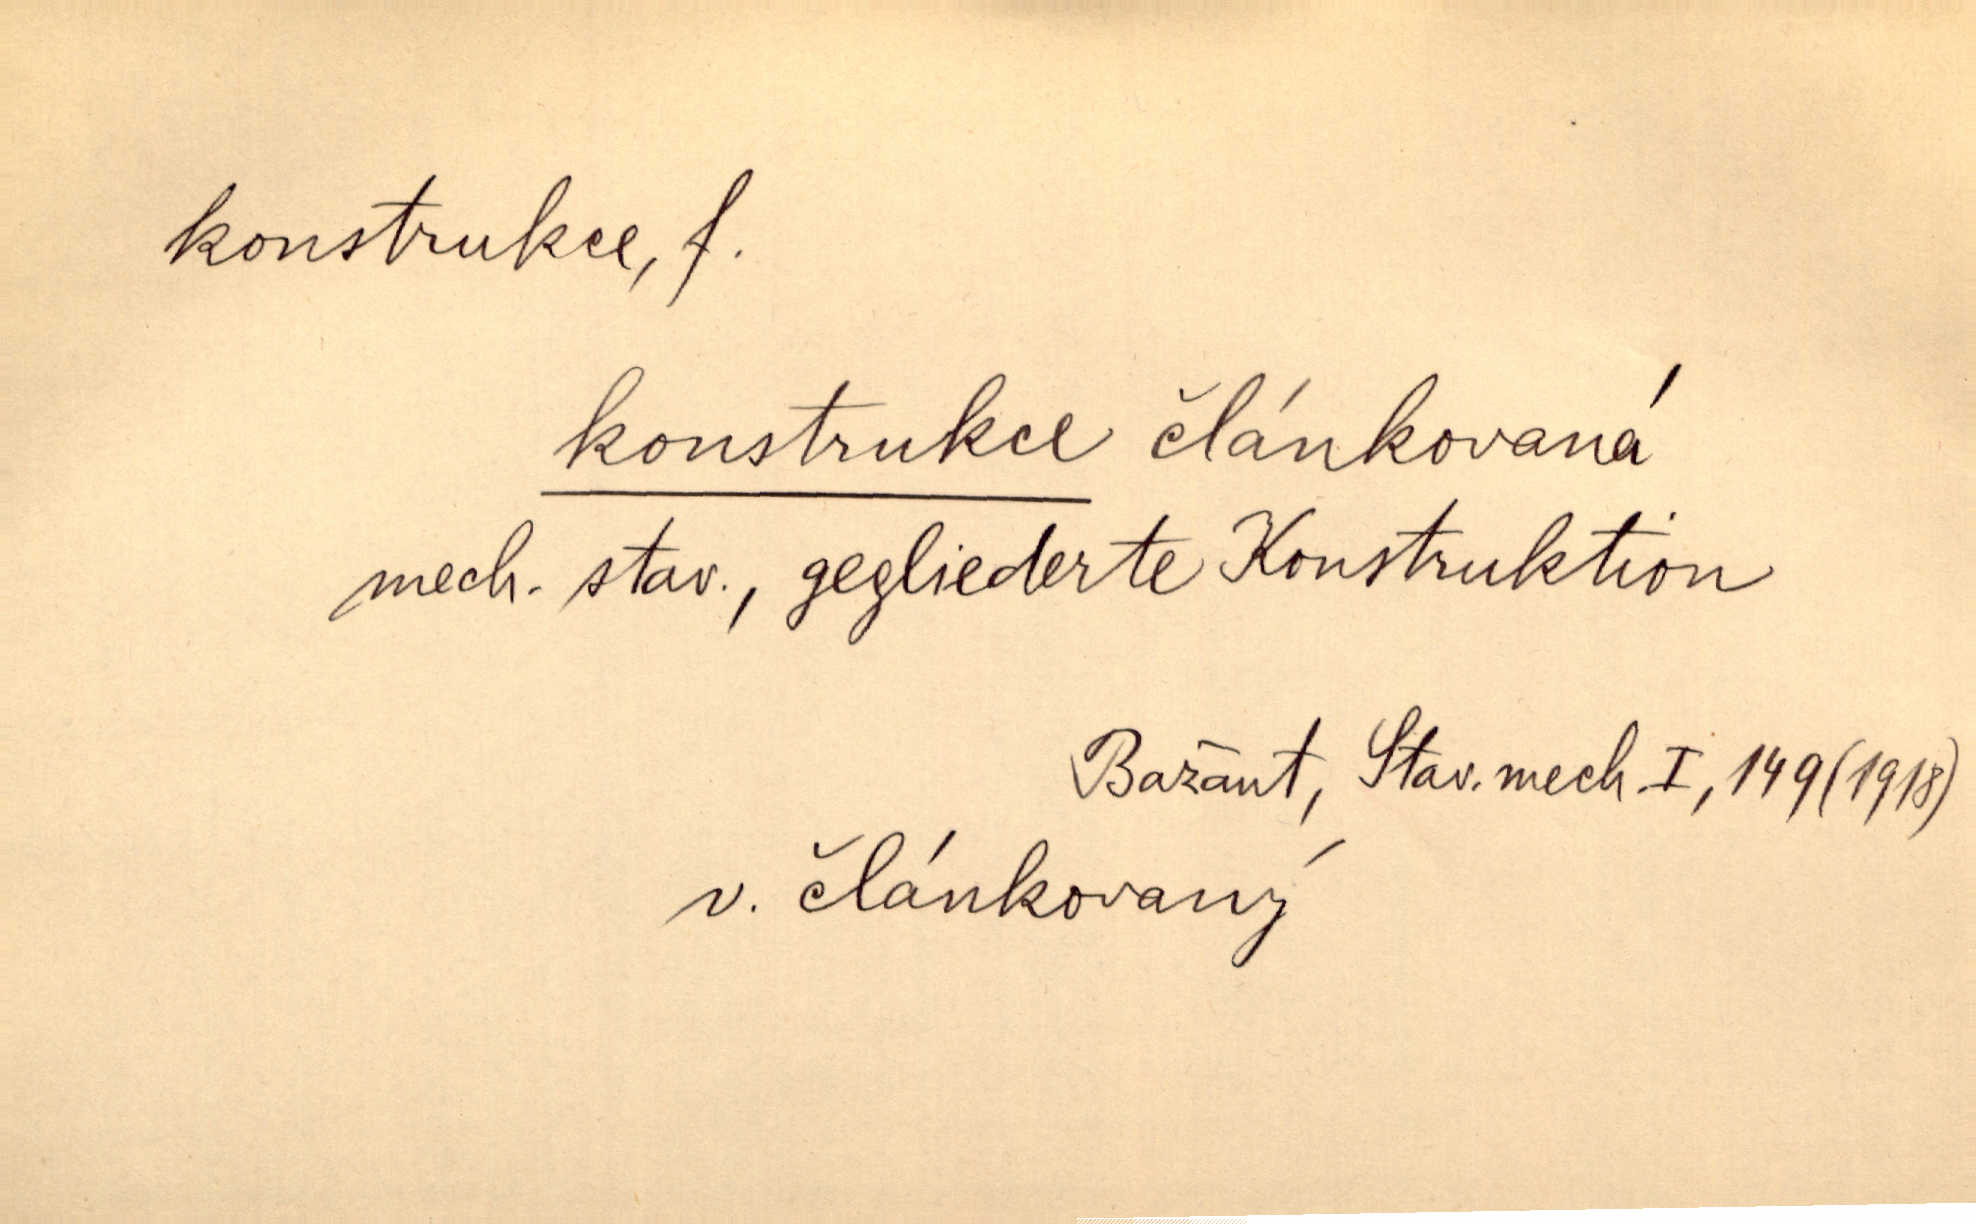 konstrukce, f.
konstrukce článkovaná
mech. stav., gegliederte Konstruktion
Bažant, Stav. mech. I, 149 (1918)
v. článkovaný